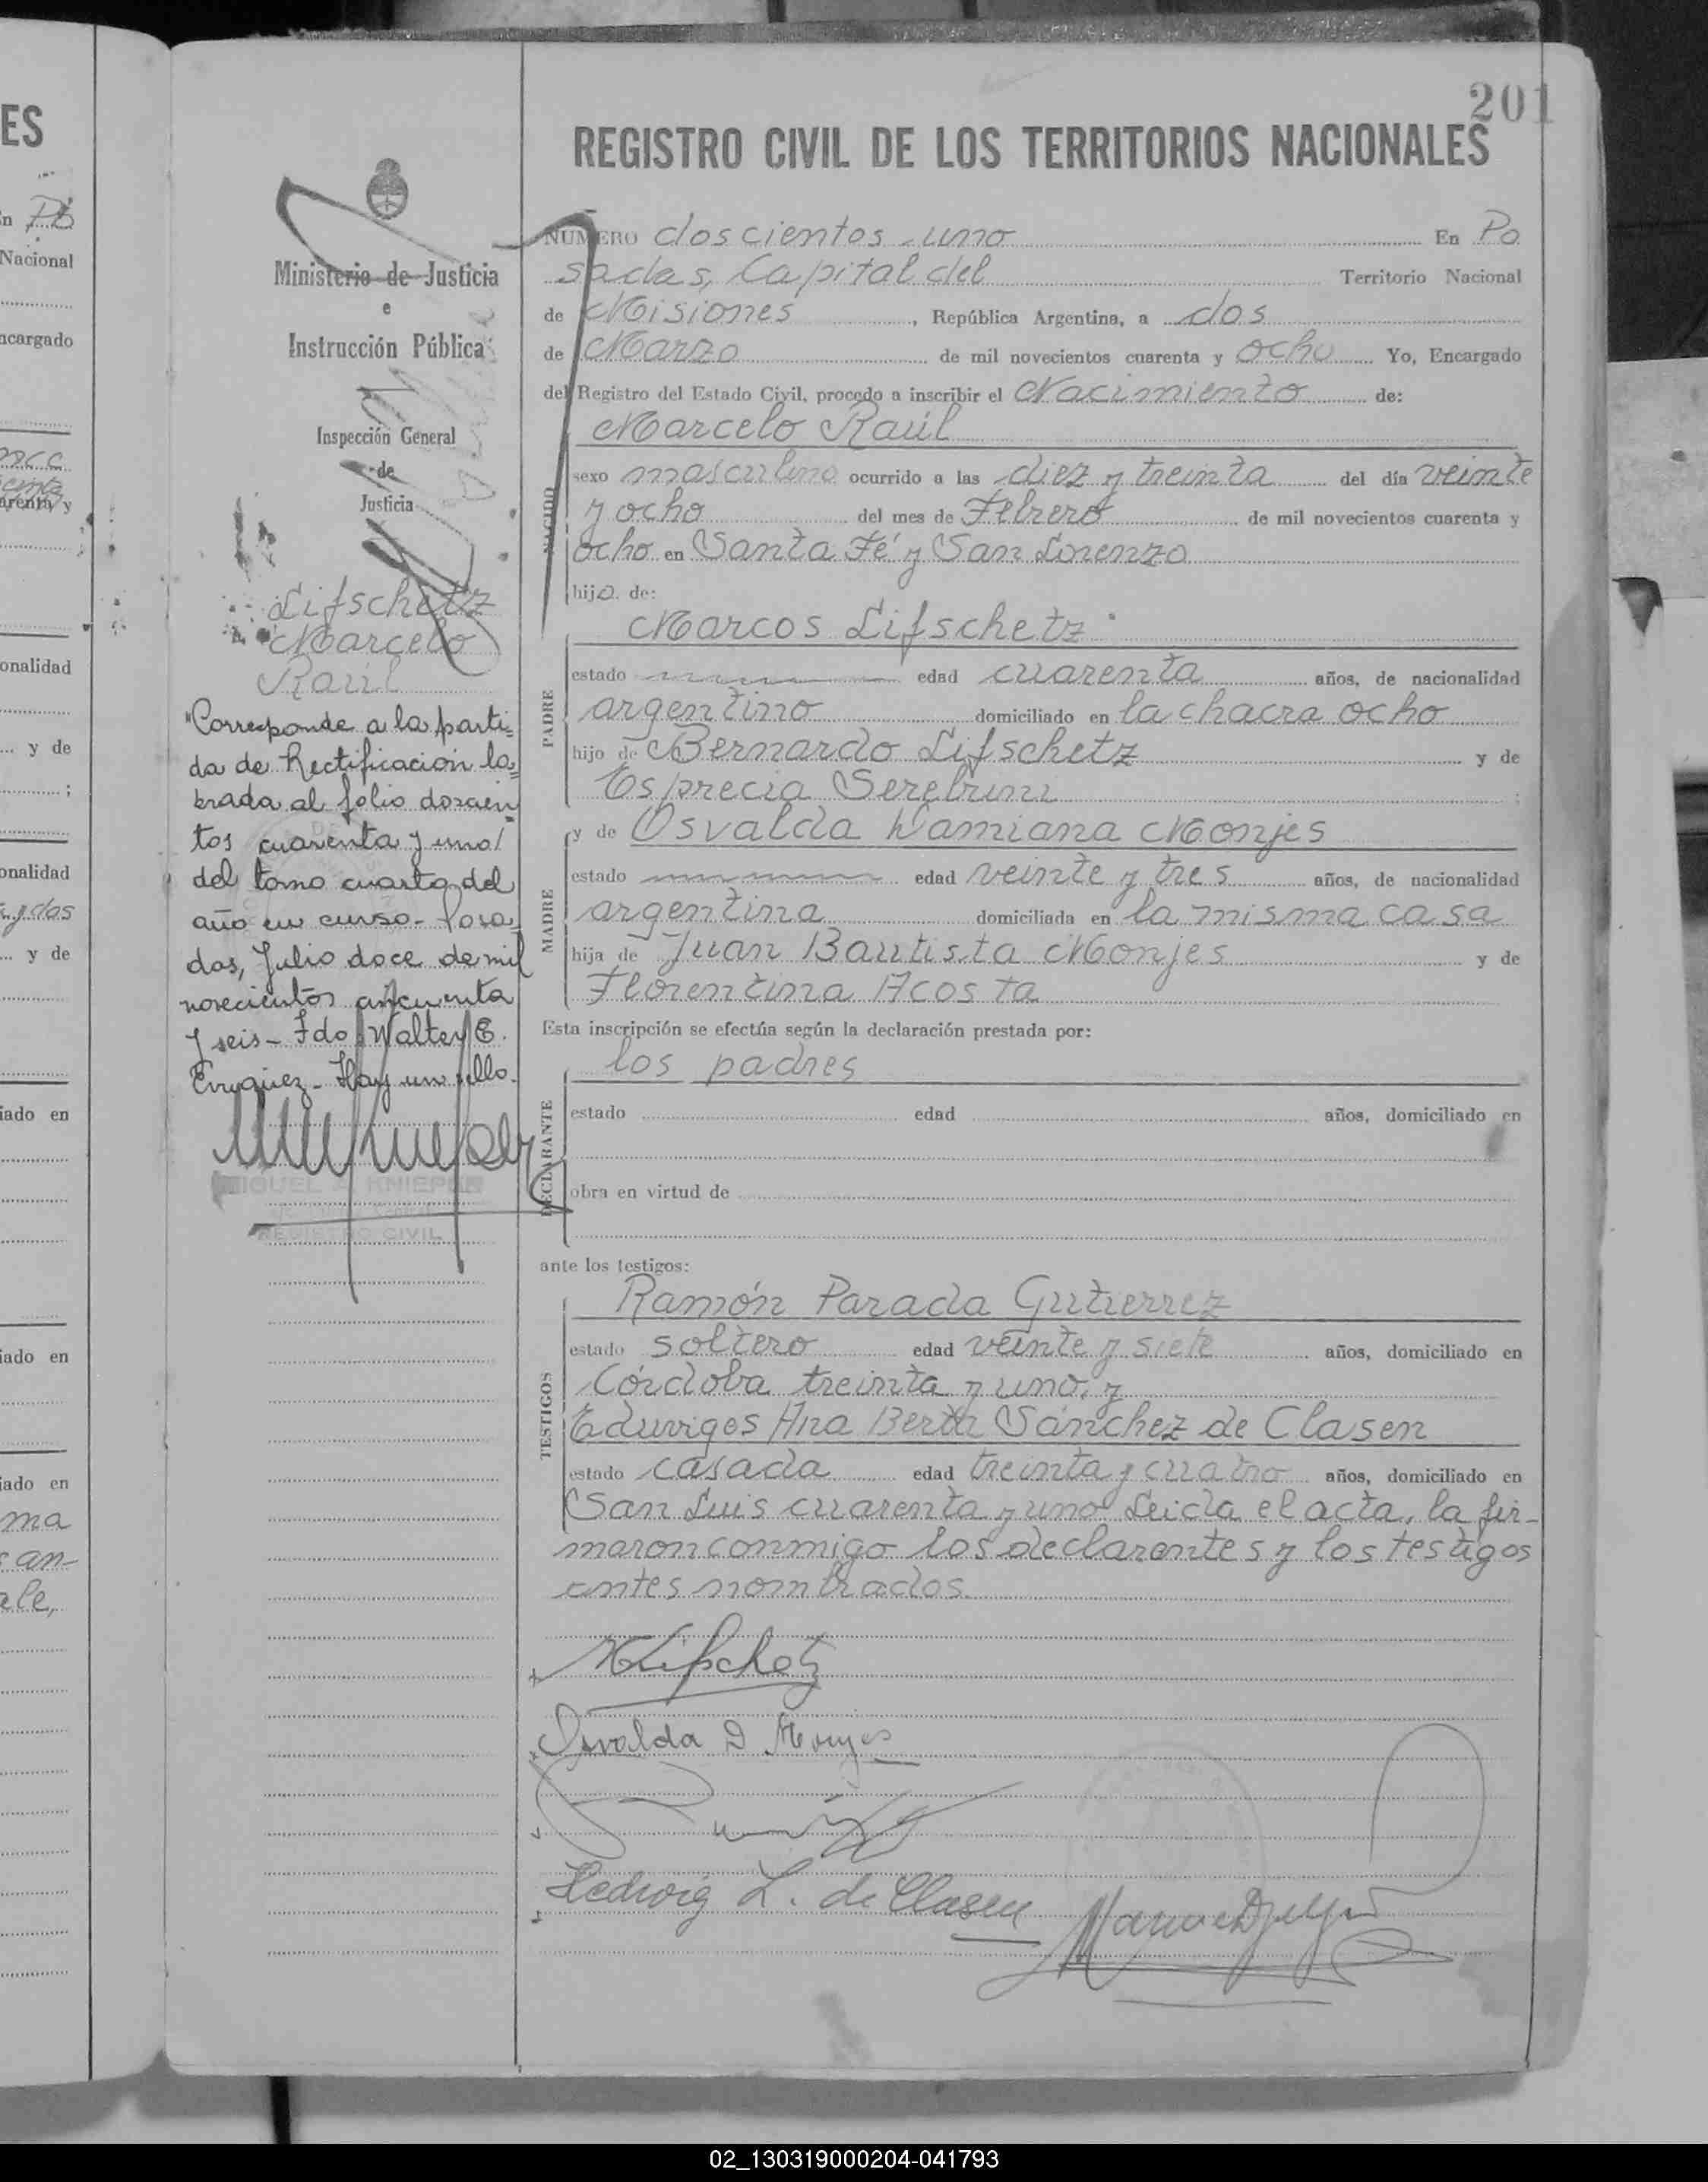 201
REGISTRO CIVIL DE LOS TERRITORIOS NACIONALES
Ministerio de Justicia
e
Instrucción Pública
Inspección General
de
Justicia
Lifschetz
Marcelo
Raúl
"Corresponde a la parti=
da de Rectificación la=
brada al folio doscien
tos cuarenta y uno/
del tomo cuarto del
año en curso- Posa
das, Julio doce de mil
novecientos cincuenta
y seis- Fdo Walter E.
Enriquez- Hay un sello.
MIGUEL A. KNIEPER
REGISTRO CIVIL
NÚMERO doscientos uno En Po
sadas, Capital del Territorio Nacional
de Misiones, República Argentina, a dos
de Marzo de mil novecientos cuarenta y ocho Yo, Encargado
del Registro del Estado Civil, procedo a inscribir el Nacimiento de:
NACIDO
Marcelo Raúl
sexo masculino ocurrido a las diez y treinta del día veinte
y ocho del mes de Febrero de mil novecientos cuarenta y
ocho en Santa Fé y San Lorenzo
hijo de:
PADRE
Marcos Lifschetz
estado edad cuarenta años, de nacionalidad
argentino domiciliado en la chacra ocho
hijo de Bernardo Lifschetz y de
Esprecia ;
MADRE
y de Osvalda Damiana Monjes
estado edad veinte y tres años, de nacionalidad
argentina domiciliada en la misma casa
hija de Juan Bautista Monjes y de
Florentina Acosta
Esta inscripción se efectúa según la declaración prestada por:
DECLARANTE
los padres
estado edad años, domiciliado en
obra en virtud de
ante los testigos:
TESTIGOS
Ramón Parada Gutierrez
estado soltero edad veinte y siete años, domiciliado en
Córdoba treinta y uno, y
Eduviges Ana Berta Sánchez de Clasen
estado casada edad treinta y cuatro años, domiciliado en
San Luis cuarenta y uno Leida el acta, la fir-
maron conmigo los declarantes y los testigos
antes nombrados.
MLifschetz
Osvalda D Monjes
Hedwig L. de Clasen
ES
Nacional
ncargado
arenta y
onalidad
y de
;
onalidad
y dos
y de
iado en
iado en
iado en
ma
an-
ale,
02_130319000204-041793